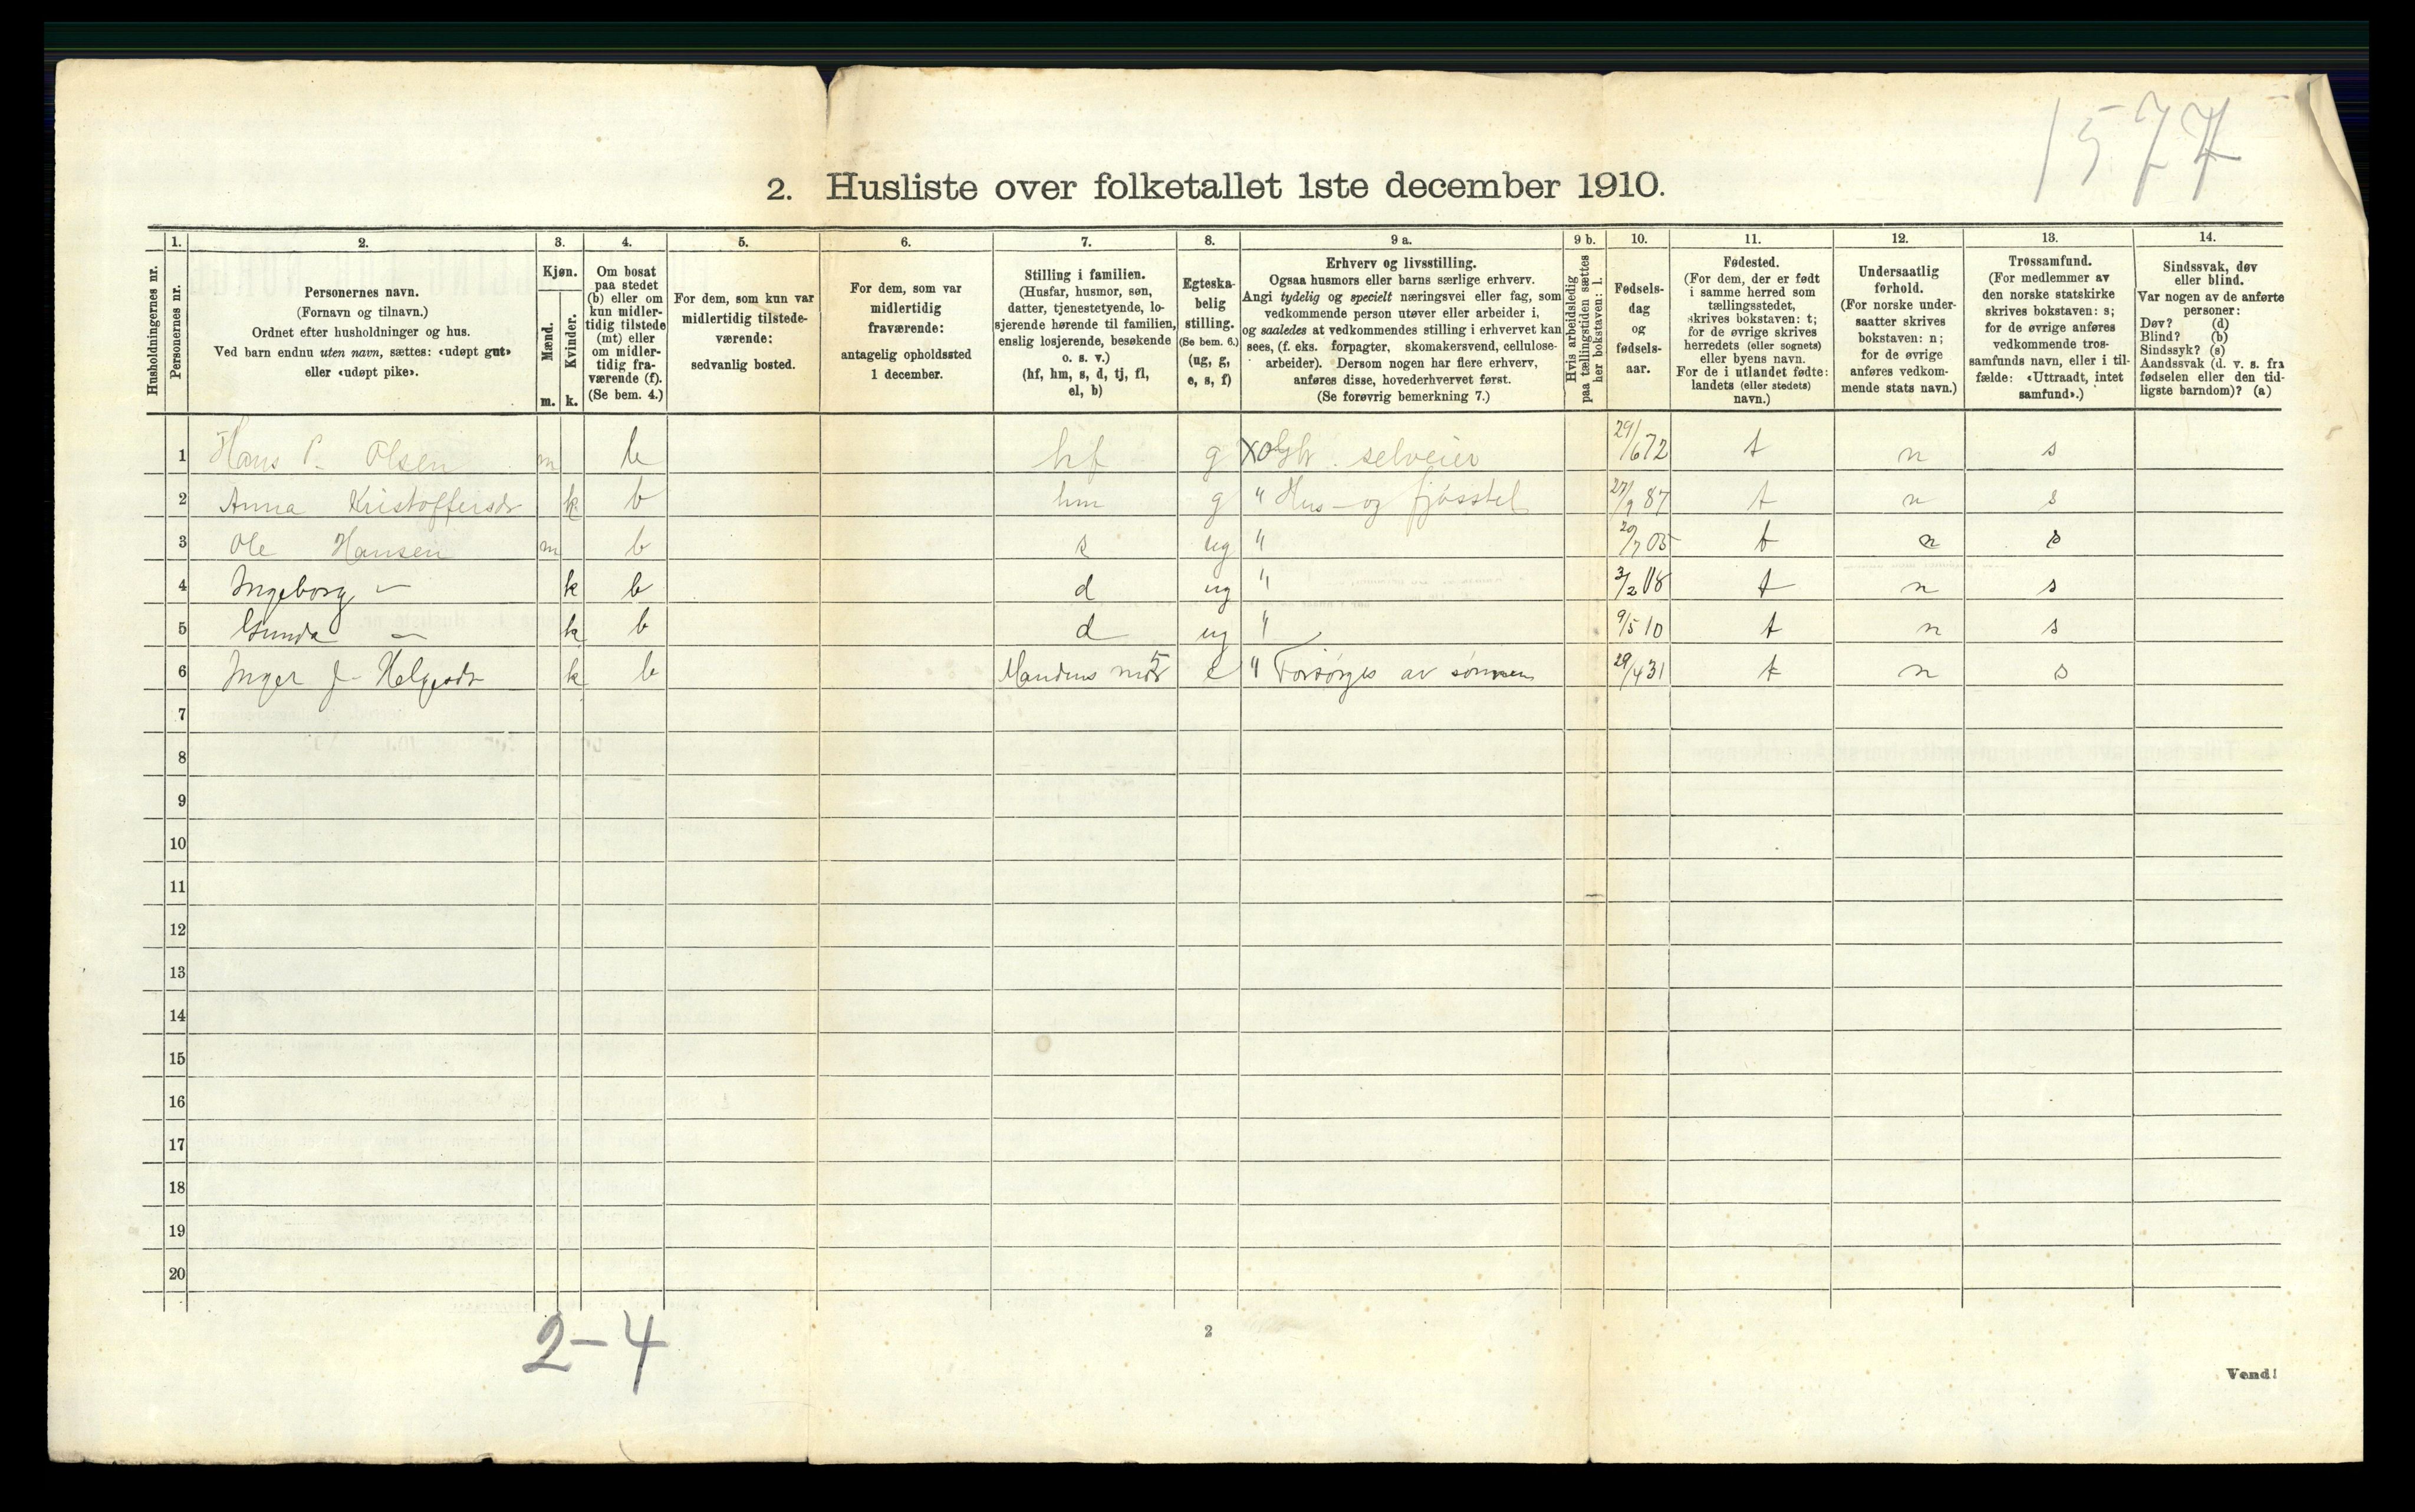 1577
2. Husliste over folketallet 1ste december 1910.
Husholdningernes nr.
1. Personernes nr.
2. Personernes navn.
(Fornavn og tilnavn.)
Ordnet efter husholdninger og hus.
Ved barn endnu uten navn, sættes: «udøpt gut»
eller «udøpt pike».
3. Kjøn.
Mænd. m.
Kvinder. k.
4. Om bosat
paa stedet
(b) eller om
kun midler-
tidig tilstede
(mt) eller
om midler-
tidig fra-
værende (f).
(Se bem. 4.)
5. For dem, som kun var
midlertidig tilstede-
værende:
sedvanlig bosted.
6. For dem, som var
midlertidig
fraværende:
antagelig opholdssted
1 december.
7. Stilling i familien.
(Husfar, husmor, søn,
datter, tjenestetyende, lo-
sjerende hørende til familien,
enslig losjerende, besøkende
o. s. v.)
(hf, hm, s, d, tj, fl,
el, b)
8. Egteska-
belig
stilling.
(Se bem. 6.)
(ug, g,
e, s, f)
9 a. Erhverv og livsstilling.
Ogsaa husmors eller barns særlige erhverv.
Angi tydelig og specielt næringsvei eller fag, som
vedkommende person utøver eller arbeider i,
og saaledes at vedkommendes stilling i erhvervet kan
sees, (f. eks. forpagter, skomakersvend, cellulose-
arbeider). Dersom nogen har flere erhverv,
anføres disse, hovederhvervet først.
(Se forøvrig bemerkning 7.)
9 b. Hvis arbeidsledig
paa tællingstiden sættes
her bokstaven: l.
10. Fødsels-
dag
og
fødsels-
aar.
11. Fødested.
(For dem, der er født
i samme herred som
tællingsstedet,
skrives bokstaven: t;
for de øvrige skrives
herredets (eller sognets)
eller byens navn.
For de i utlandet fødte:
landets (eller stedets)
navn.)
12. Undersaatlig
forhold.
(For norske under-
saatter skrives
bokstaven: n;
for de øvrige
anføres vedkom-
mende stats navn.)
13. Trossamfund.
(For medlemmer av
den norske statskirke
skrives bokstaven: s;
for de øvrige anføres
vedkommende tros-
samfunds navn, eller i til-
fælde: «Uttraadt, intet
samfund».)
14. Sindssvak, døv
eller blind.
Var nogen av de anførte
personer:
Døv? (d)
Blind? (b)
Sindssyk? (s)
Aandssvak (d. v. s. fra
fødselen eller den tid-
ligste barndom)? (a)
1 Hans P. Olsen m b hf g X selveier 29/6 72 t n s
2 Anna Kristoffersdr k b hm g " Hus- og fjøsstel 27/9 87 t n s
3 Ole Hansen m b s ug " 20/7 05 t n s
4 Ingeborg — k b d ug " 3/2 08 t n s
5 Gunda — k b d ug " 9/5 10 t n s
6 Inger J. Helgesdr k b Mandens mor 5 e " Forsørges av sønnen 29/4 31 t n s
7
8
9
10
11
12
13
14
15
16
17
18
19
20
2-4
2
Vend!